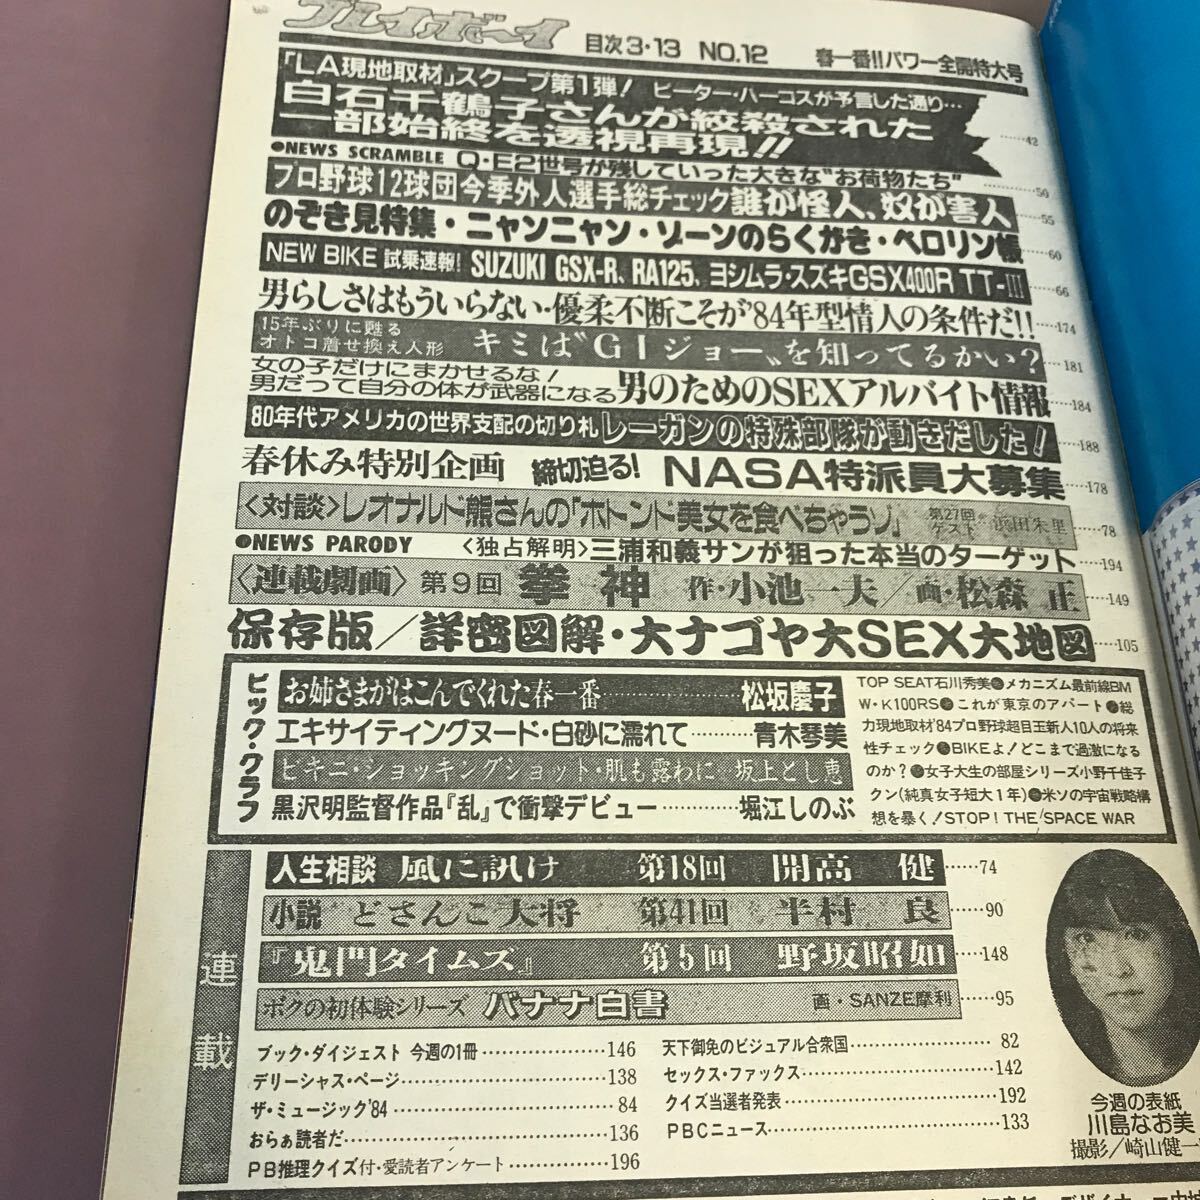 プレイボーイ 目次3・13 NO.12 春一番!!パワー全開特大号
「LA現地取材」スクープ第1弾! ピーター・ハーコスが予言した通り…
白石千鶴子さんが絞殺された
一部始終を透視再現!! 42
●NEWS SCRAMBLE Q・E2世号が残していった大きな“お荷物たち” 50
プロ野球12球団今季外人選手総チェック誰が怪人、奴が害人 55
のぞき見特集・ニャンニャン・ゾーンのらくがき・ペロリン帳 60
NEW BIKE 試乗速報! SUZUKI GSX-R、RA125、ヨシムラ・スズキGSX400R TT-III 66
男らしさはもういらない・優柔不断こそが'84年型情人の条件だ!! 174
15年ぶりに甦る
オトコ着せ換え人形 キミは“GIジョー”を知ってるかい? 181
女の子だけにまかせるな!
男だって自分の体が武器になる 男のためのSEXアルバイト情報 184
80年代アメリカの世界支配の切り札 レーガンの特殊部隊が動きだした! 188
春休み特別企画 締切迫る! NASA特派員大募集 178
〈対談〉レオナルド熊さんの「ホトンド美女を食べちゃうゾ」 第27回 ゲスト 浜田朱里 78
●NEWS PARODY 〈独占解明〉三浦和義サンが狙った本当のターゲット 194
〈連載劇画〉第9回 拳神 作・小池一夫/画・松森 正 149
保存版/詳密図解・大ナゴヤ大SEX大地図 105
ビッグ・グラフ
お姉さまがはこんでくれた春一番 松坂慶子
エキサイティングヌード・白砂に濡れて 青木琴美
ビキニ・ショッキングショット・肌も露わに 坂上とし恵
黒沢明監督作品『乱』で衝撃デビュー 堀江しのぶ
TOP SEAT石川秀美●メカニズム最前線BM
W・K100RS●これが東京のアパート●総
力現地取材'84プロ野球超目玉新人10人の将来
性チェック●BIKEよ!どこまで過激になる
のか?●女子大生の部屋シリーズ小野千佳子
クン(純真女子短大1年)●米ソの宇宙戦略構
想を暴く!STOP! THE SPACE WAR
連載
人生相談 風に訊け 第18回 開高 健 74
小説 どさんこ大将 第41回 半村 良 90
『鬼門タイムズ』 第5回 野坂昭如 148
ボクの初体験シリーズ バナナ白書 画・SANZE摩利 95
ブック・ダイジェスト 今週の1冊 146
デリーシャス・ページ 138
ザ・ミュージック'84 84
おらぁ読者だ 136
PB推理クイズ付・愛読者アンケート 196
天下御免のビジュアル合衆国 82
セックス・ファックス 142
クイズ当選者発表 192
PBCニュース 133
今週の表紙
川島なお美
撮影/崎山健一